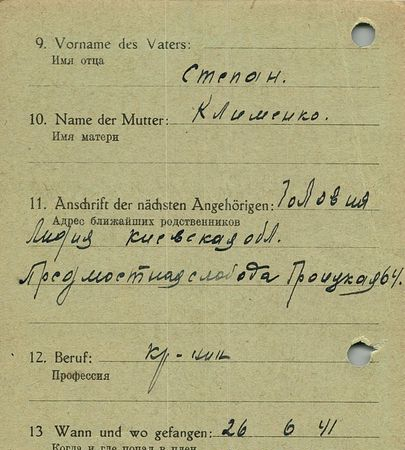 9. Vorname des Vaters:
Имя отца
Степан.
10. Name der Mutter: Клименко.
Имя матери
11. Anschrift der nächsten Angehörigen: Головия
Адрес ближайших родственников
Лифия киевская обл.
Предмостная слобода Троицкая 64.
12. Beruf: кр-нин
Профессия
13 Wann und wo gefangen: 26 6 41
Когда и где попал в плен